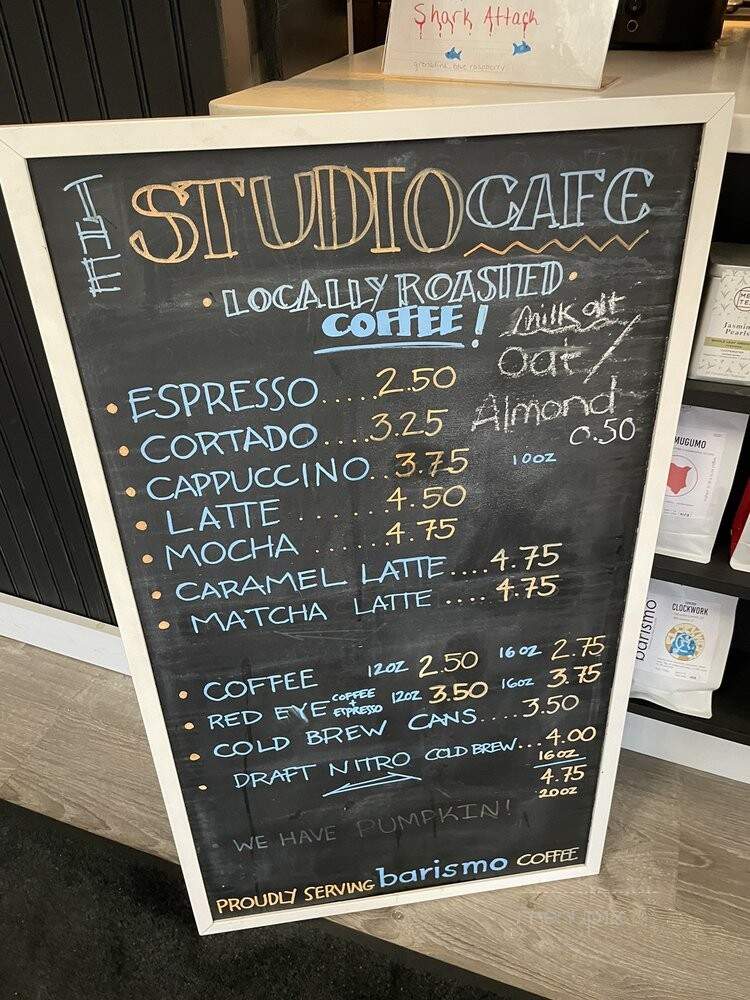 Shark Attack
grenadine, blue raspberry
THE STUDIO CAFE
LOCALLY ROASTED
COFFEE!
Milk alt
Oat/
Almond
0.50
ESPRESSO.....2.50
CORTADO....3.25
CAPPUCCINO..3.75 10oz
LATTE......4.50
MOCHA......4.75
CARAMEL LATTE....4.75
MATCHA LATTE....4.75
COFFEE 12oz 2.50 16oz 2.75
RED EYE COFFEE + ESPRESSO 12oz 3.50 16oz 3.75
COLD BREW CANS....3.50
DRAFT NITRO COLD BREW...4.00
16oz
4.75
20oz
WE HAVE PUMPKIN!
PROUDLY SERVING barismo COFFEE
Jasmine
Pearls
MUGUMO
barismo
CLOCKWORK